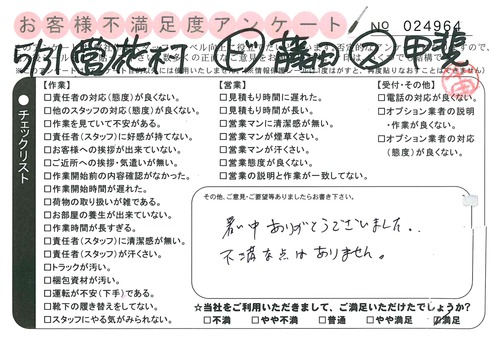 お客様不満足度アンケート
No 024964
5/31
甲斐
チェックリスト
【作業】
□責任者の対応(態度)が良くない。
□他のスタッフの対応(態度)が良くない。
□作業を見ていて不安がある。
□責任者(スタッフ)に好感が持てない。
□お客様への挨拶が出来ていない。
□ご近所への挨拶・気遣いが無い。
□作業開始前の内容確認がなかった。
□作業開始時間が遅れた。
□荷物の取り扱いが雑である。
□お部屋の養生が出来ていない。
□作業時間が長すぎる。
□責任者(スタッフ)に清潔感が無い。
□責任者(スタッフ)が汗くさい。
□トラックが汚い。
□梱包資材が汚い。
□運転が不安(下手)である。
□靴下の履き替えをしてない。
□スタッフにやる気がみられない。
【営業】
□見積もり時間に遅れた。
□見積もり時間が長い。
□営業マンに清潔感が無い。
□営業マンが煙草くさい。
□営業マンが汗くさい。
□営業態度が良くない。
□営業の説明と作業が一致してない。
【受付・その他】
□電話の対応が良くない。
□オプション業者の説明
・作業が良くない。
□オプション業者の対応
(態度)が良くない。
その他、ご意見・ご要望等ありましたらお書き下さい。
暑い中ありがとうございました。
不満な点はありません。
☆当社をご利用いただきまして、ご満足いただけたでしょうか?
□不満 □やや不満 □普通 □やや満足 □満足